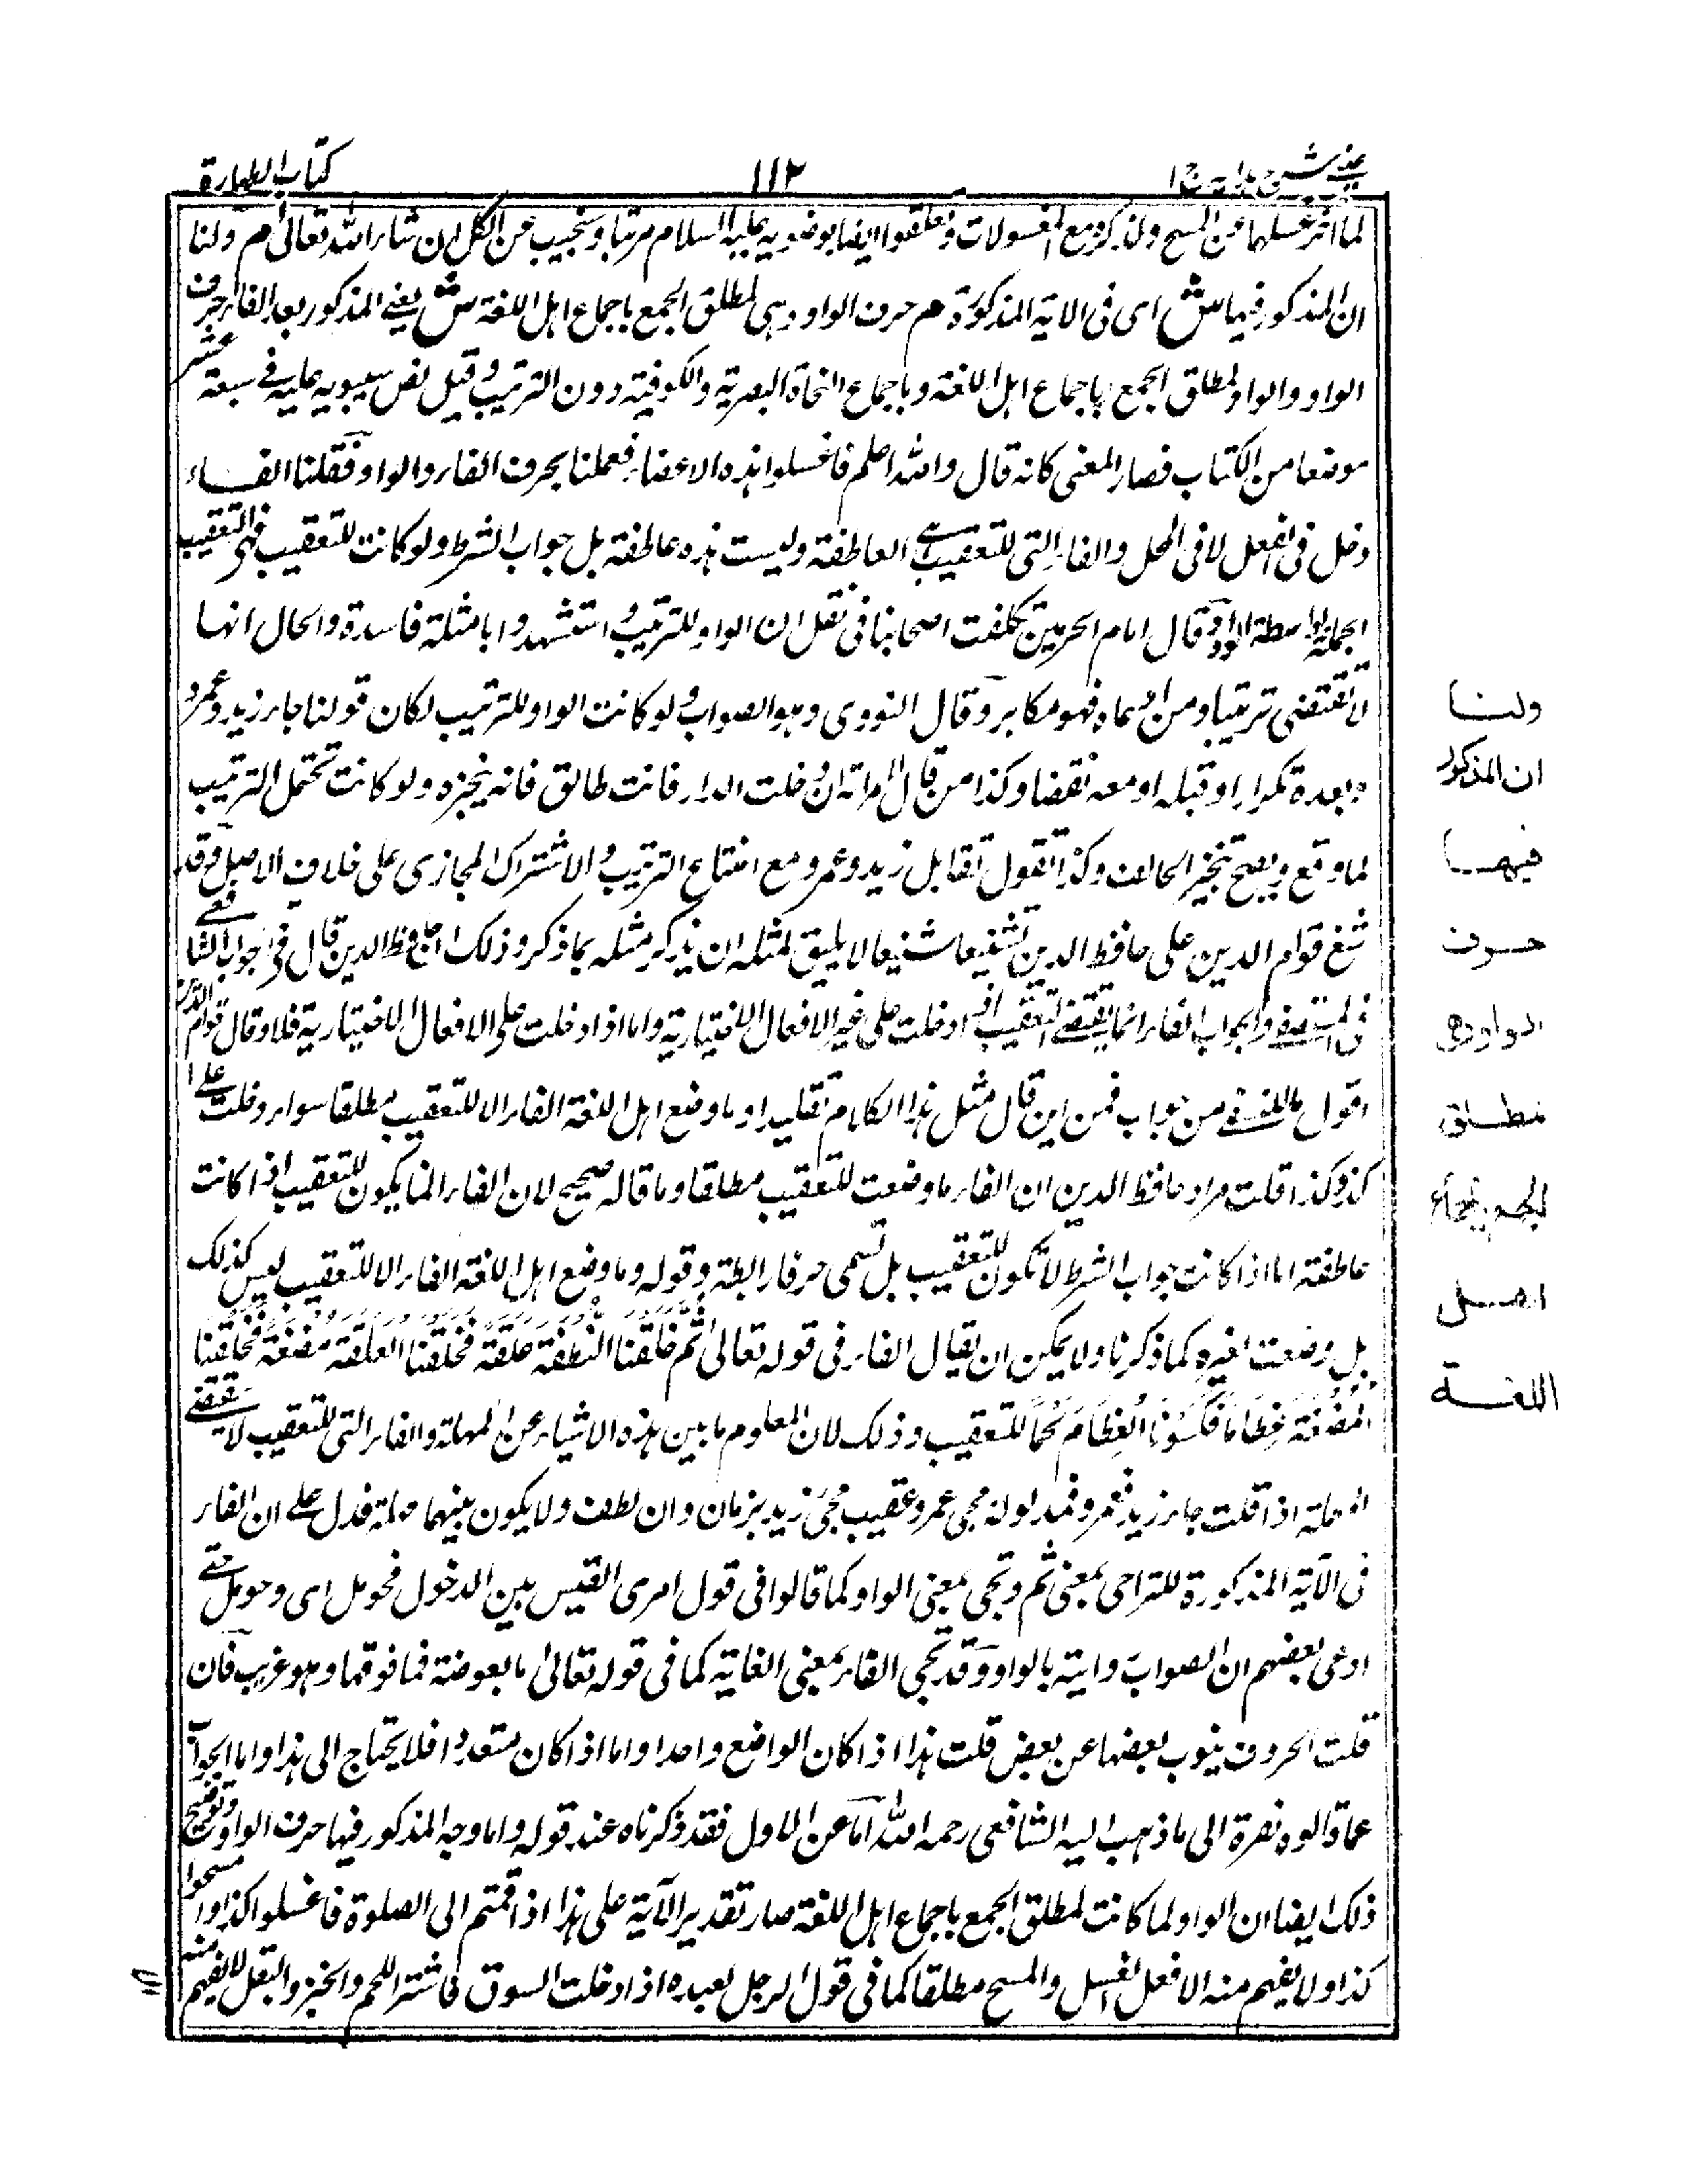 عينى شرح هداية ج ١
١١٢
كتاب الطهارة
لما اخر غسلهما عن المسح ولذكره مع المغسولات وتعلقوا ايضا بوضوئه عليه السلام مرتبا وسنجيب عن الكل ان شاء الله تعالى م ولنا
ان المذكور فيها ش اى فى الاية المذكورة م حرف الواو وهى لمطلق الجمع باجماع اهل اللغة ش يعنى المذكور بعد الفاء حرف
الواو والواو لمطلق الجمع باجماع اهل اللغة وباجماع النحاة البصرية والكوفية دون الترتيب وقيل نص سيبويه عليه فى سبعة عشر
موضعا من الكتاب فصار المعنى كانه قال والله اعلم فاغسلوا هذه الاعضاء فعملنا بحرف الفاء والواو فقلنا الفاء
دخل فى الفعل لا فى المحل والفاء التى للتعقيب هى العاطفة وليست هذه عاطفة بل جواب الشرط ولو كانت للتعقيب فهى لتعقيب
الجملة بواسطة الواو وقال امام الحرمين تكلفت اصحابنا فى نقل ان الواو للترتيب واستشهدوا بامثلة فاسدة والحال انها
لا تقتضى ترتيبا ومن ادعاه فهو مكابر وقال النووى وهو الصواب ولو كانت الواو للترتيب لكان قولنا جاء زيد وعمرو
بعده تكرارا وقبله او معه نقضا وكذا من قال لامراته ان دخلت الدار فانت طالق فانه ينجزه ولو كانت تحتمل الترتيب
لما وقع ويصح تنجيز الحالف وكذا تقول تقابل زيد وعمرو مع امتناع الترتيب والاشتراك المجازى على خلاف الاصل وقد
شنع قوام الدين على حافظ الدين تشنيعا شنيعا لا يليق لمثله ان يذكر مثله بما ذكر وذلك ان حافظ الدين قال فى جواب الشافعى
فى المستصفى والجواب الفاء انما يقتضى التعقيب اذا دخلت على غير الافعال الاختيارية واما اذا دخلت على الافعال الاختيارية فلا وقال قوام الدين
اقول ما للنسفى من جواب فمن اين قال مثل هذا الكلام تقليدا وما وضع اهل اللغة الفاء الا للتعقيب مطلقا سواء دخلت على
كذا وكذا قلت مراد حافظ الدين ان الفاء ما وضعت للتعقيب مطلقا وما قاله صحيح لان الفاء انما يكون للتعقيب اذا كانت
عاطفة اما اذا كانت جواب الشرط لا تكون للتعقيب بل تسمى حرفا رابطة وقوله وما وضع اهل اللغة الفاء الا للتعقيب ليس كذلك
بل وضعت لغيره كما ذكرنا ولا يمكن ان يقال الفاء فى قوله تعالى ثُمَّ خَلَقْنَا النُّطْفَةَ عَلَقَةً فَخَلَقْنَا الْعَلَقَةَ مُضْغَةً فَخَلَقْنَا
الْمُضْغَةَ عِظَامًا فَكَسَوْنَا الْعِظَامَ لَحْمًا للتعقيب وذلك لان المعلوم ما بين هذه الاشياء عن المهلة والفاء التى للتعقيب لا يقتضى
المهلة اذا قلت جاء زيد فعمرو فمدلوله مجى عمرو عقيب مجئ زيد بزمان وان لطف ولا يكون بينهما مهلة فدل على ان الفاء
فى الآية المذكورة للتراخى بمعنى ثم وتجى بمعنى الواو كما قالوا فى قول امرى القيس بين الدخول فحومل اى وحومل حتى
ادعى بعضهم ان الصواب رايته بالواو وقد تجى الفاء بمعنى الغاية كما فى قوله تعالى ما بعوضة فما فوقها وهو غريب فان
قلت الحروف ينوب بعضها عن بعض قلت هذا اذا كان الواضع واحدا واما اذا كان متعددا فلا يحتاج الى هذا واما الجواب
عما قالوه نصرة الى ما ذهب اليه الشافعى رحمه الله اما عن الاول فقد ذكرناه عند قوله واما وجه المذكور فيها حرف الواو وتوضيح
ذلك ايضا ان الواو لما كانت لمطلق الجمع باجماع اهل اللغة صار تقدير الآية على هذا اذا قمتم الى الصلوة فاغسلوا كذا وامسحوا
كذا ولا يفهم منه الا فعل الغسل والمسح مطلقا كما فى قول الرجل لعبده اذا دخلت السوق فاشتر اللحم والخبز والبقل لا يفهم منه
ولنا
ان المذكور
فيها
حرف
الواو وهى
لمطلق
الجمع باجماع
اهل
اللغة